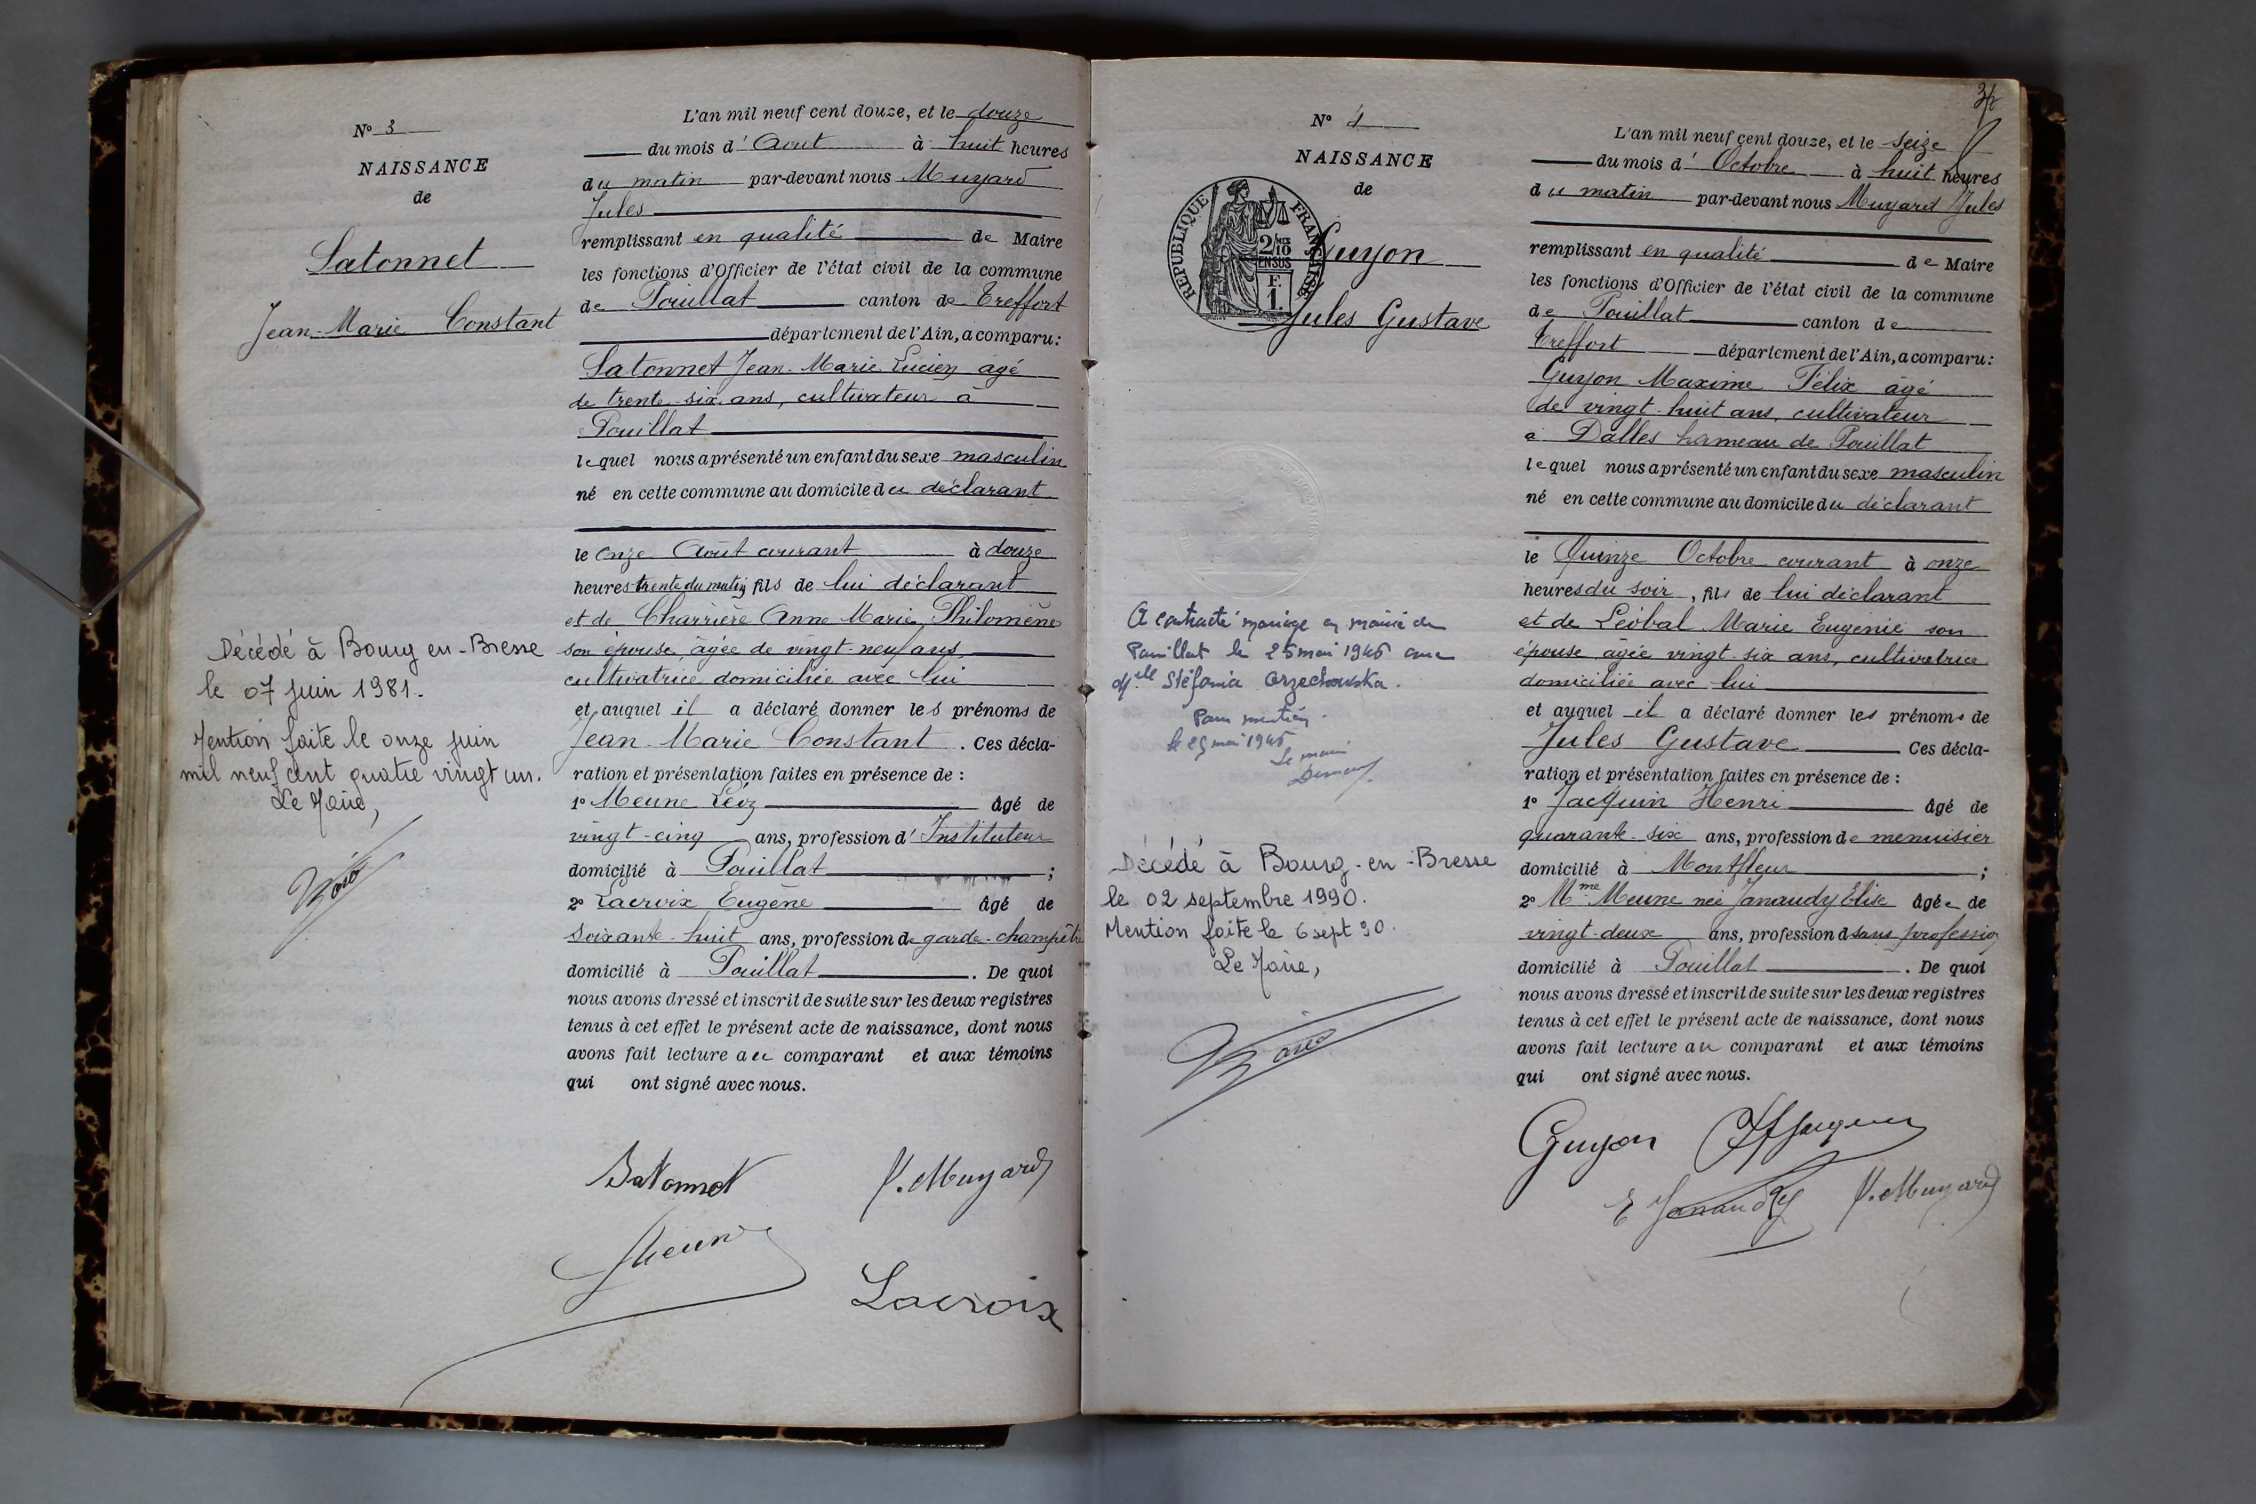 N° 3
NAISSANCE
de
Satonnet
Jean-Marie Constant
Décédé à Bourg-en-Bresse
le 07 juin 1981.
Mention faite le onze juin
mil neuf cent quatre vingt un.
Le Maire,
L'an mil neuf cent douze, et le douze
du mois d'Aout à huit heures
du matin par-devant nous Muyard
Jules
remplissant en qualité de Maire
les fonctions d'Officier de l'état civil de la commune
de Pouillat canton de Treffort
département de l'Ain, a comparu:
Satonnet Jean-Marie Lucien âgé
de trente-six ans, cultivateur à
Pouillat
lequel nous a présenté un enfant du sexe masculin
né en cette commune au domicile du déclarant
le onze Août courant à douze
heures trente du matin fils de lui déclarant
et de Charrière Anne Marie Philomène
son épouse, âgée de vingt-neuf ans
cultivatrice domiciliée avec lui
et auquel il a déclaré donner les prénoms de
Jean-Marie Constant. Ces décla-
ration et présentation faites en présence de :
1° Meune Léon âgé de
vingt-cinq ans, profession d'Instituteur
domicilié à Pouillat ;
2° Lacroix Eugène âgé de
soixante-huit ans, profession de garde-champêtre
domicilié à Pouillat. De quoi
nous avons dressé et inscrit de suite sur les deux registres
tenus à cet effet le présent acte de naissance, dont nous
avons fait lecture au comparant et aux témoins
qui ont signé avec nous.
Satonnet J. Muyard
Meune
Lacroix
34
N° 4
NAISSANCE
de
REPUBLIQUE FRANÇAISE
2/10
EN SUS
F.
1.
Guyon
Jules Gustave
A contracté mariage en mairie de
Pouillat le 25 mai 1946 avec
Mlle Stéfania Orzechowska.
Pour mention.
le 25 mai 1946
Le maire
Décédé à Bourg-en-Bresse
le 02 septembre 1990.
Mention faite le 6 sept 90.
Le Maire,
L'an mil neuf cent douze, et le seize
du mois d'Octobre à huit heures
du matin par-devant nous Muyard Jules
remplissant en qualité de Maire
les fonctions d'Officier de l'état civil de la commune
de Pouillat canton de
Treffort département de l'Ain, a comparu:
Guyon Maxime Félix âgé
de vingt-huit ans, cultivateur
à Dalles hameau de Pouillat
lequel nous a présenté un enfant du sexe masculin
né en cette commune au domicile du déclarant
le Quinze Octobre courant à onze
heures du soir, fils de lui déclarant
et de Léobal Marie Eugénie son
épouse âgée vingt-six ans, cultivatrice
domiciliée avec lui
et auquel il a déclaré donner les prénoms de
Jules Gustave Ces décla-
ration et présentation faites en présence de :
1° Jacquin Henri âgé de
quarante-six ans, profession de menuisier
domicilié à Montfleur ;
2° Mme Meune née Janaudy Elise âgée de
vingt-deux ans, profession d sans profession
domicilié à Pouillat. De quoi
nous avons dressé et inscrit de suite sur les deux registres
tenus à cet effet le présent acte de naissance, dont nous
avons fait lecture au comparant et aux témoins
qui ont signé avec nous.
Guyon Jacquin
E Janaudy J. Muyard